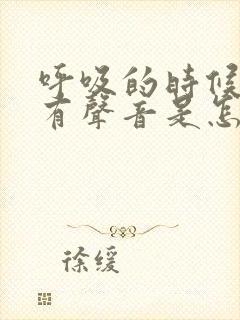 呼吸的時候
有聲音是怎
徐缓